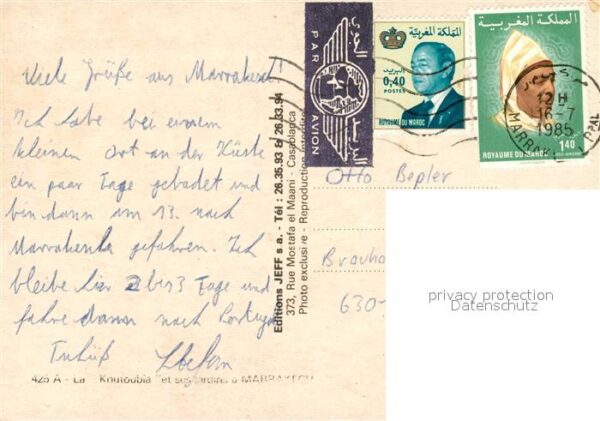 Viele Grüße aus Marrakesch!
Ich habe bei einem
kleinen Ort an der Küste
ein paar Tage gebadet und
bin dann am 13. nach
Marrakesch gefahren. Ich
bleibe hier 2 bis 3 Tage und
fahre dann nach Portugal
Tschüß Stefan
425 A - La Koutoubia et ses jardins à MARRAKECH
Editions JEFF s a. - Tél : 26.35.93 & 26.33.94
373, Rue Mostafa el Maani - Casablanca
Photo exclusive - Reproduction interdite
الجوي
PAR AVION
البريد
المملكة المغربية
البريد
0,40
POSTES
ROYAUME DU MAROC
المملكة المغربية
12 H
16-7
1985
MARRAK PPAL
1,40
ROYAUME DU MAROC
Otto Bepler
Brauha
630-
privacy protection
Datenschutz